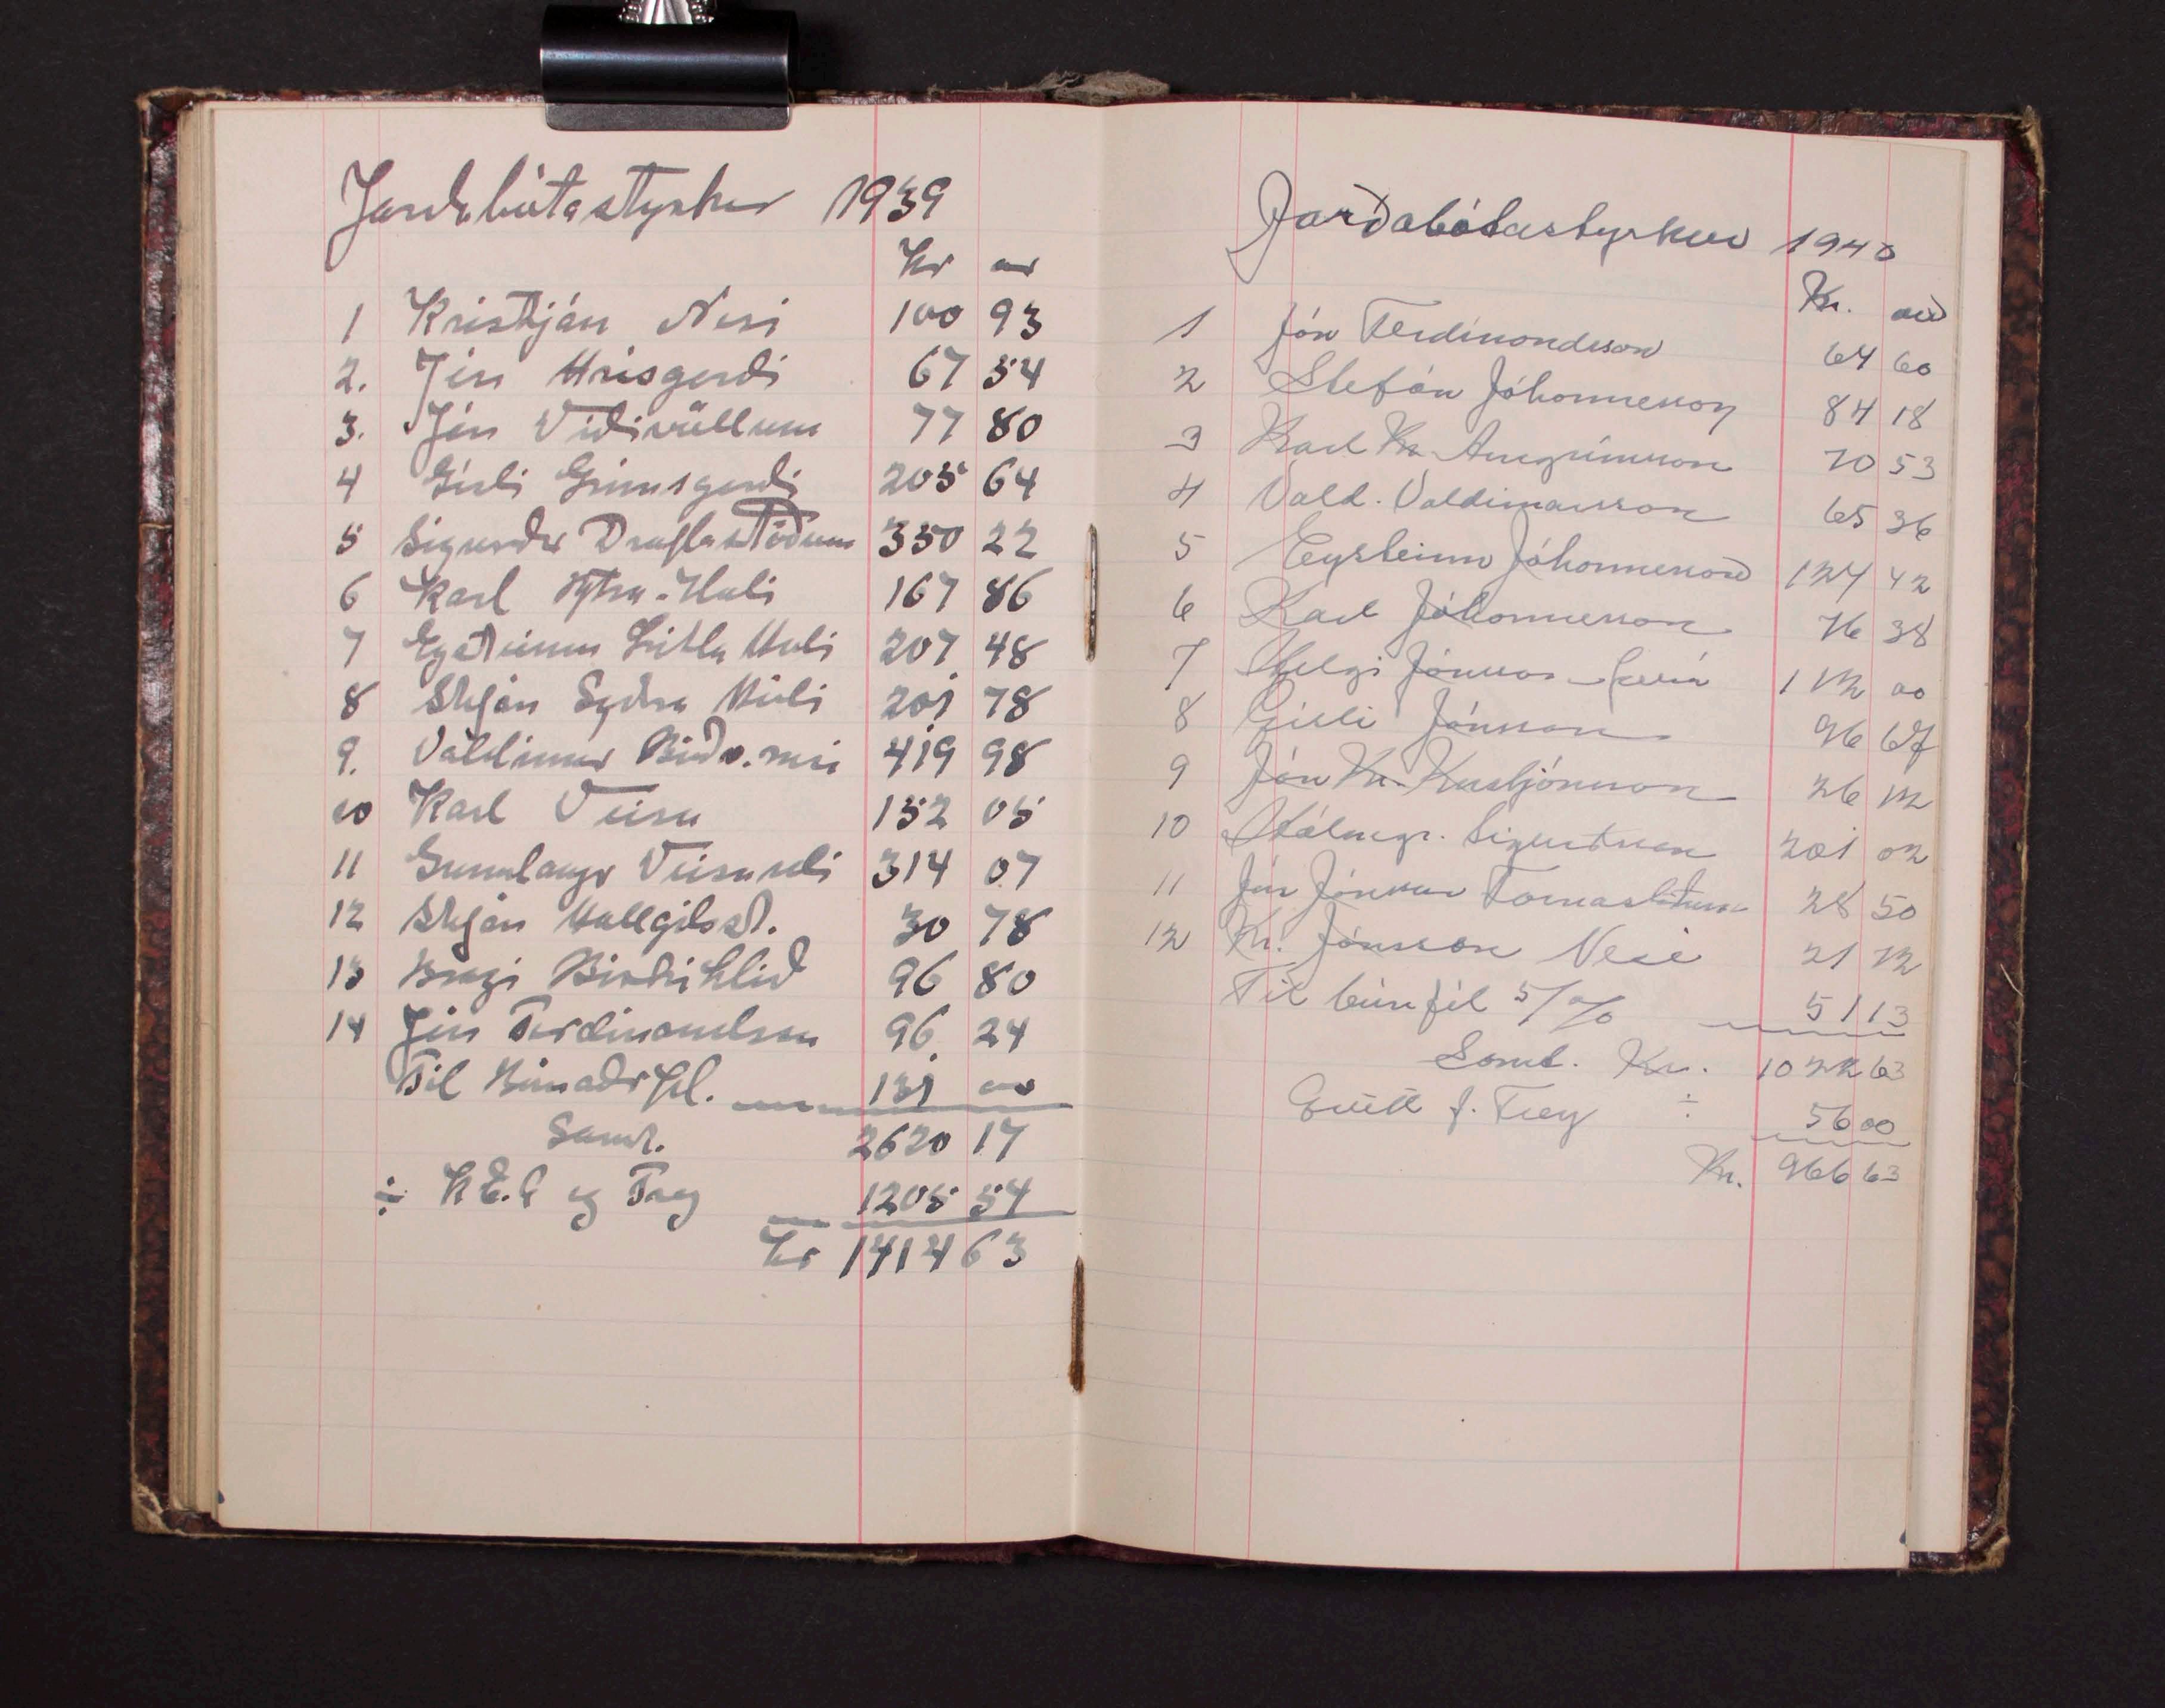 Jarðabótastyrkur 1939
Kr aur
1 Kristján Nesi 100 93
2. Jón Hrísgerði 67 54
3. Jón Víðivöllum 77 80
4 Gísli Grímsgerði 205 64
5 Sigurður Draflastöðum 350 22
6 Karl Ytra-Hóli 167 86
7 Eysteinn Litla Hóli 207 48
8 Stefán Syðra Hóli 201 78
9. Valdimar Böðv.nesi 419 98
10 Karl Veisu 152 05
11 Gunnlaugr Veisuseli 314 07
12 Stefán Hallgilsst. 30 78
13 Bragi Birkihlíð 96 80
14 Jón Ferdinandsson 96 24
Til Búnaðrfél. 131 00
Samt. 2620 17
÷ K.E.A og Treg 1205 54
Kr 1414 63
Jarðabótastyrkur 1940
Kr. aur
1 Jón Ferdinandsson 64 60
2 Stefán Jóhannesson 84 18
3 Karl Kr. Arngrímsson 70 53
4 Vald. Valdimarsson 65 36
5 Eysteinn Jóhannesson 124 42
6 Karl Jóhannesson 76 38
7 Helgi Jónsson 112 00
8 Gísli Jónsson 96 67
9 Jón Kr. Kristjánsson 26 12
10 Hálmgr. Sigurðsson 201 02
11 Jón Jónsson Fornastöðum 28 50
12 Kr. Jónsson Nesi 21 72
Til búnfél 5% 51 13
Samt. Kr. 1022 63
Greitt f. Treg ÷ 56 00
Kr. 966 63